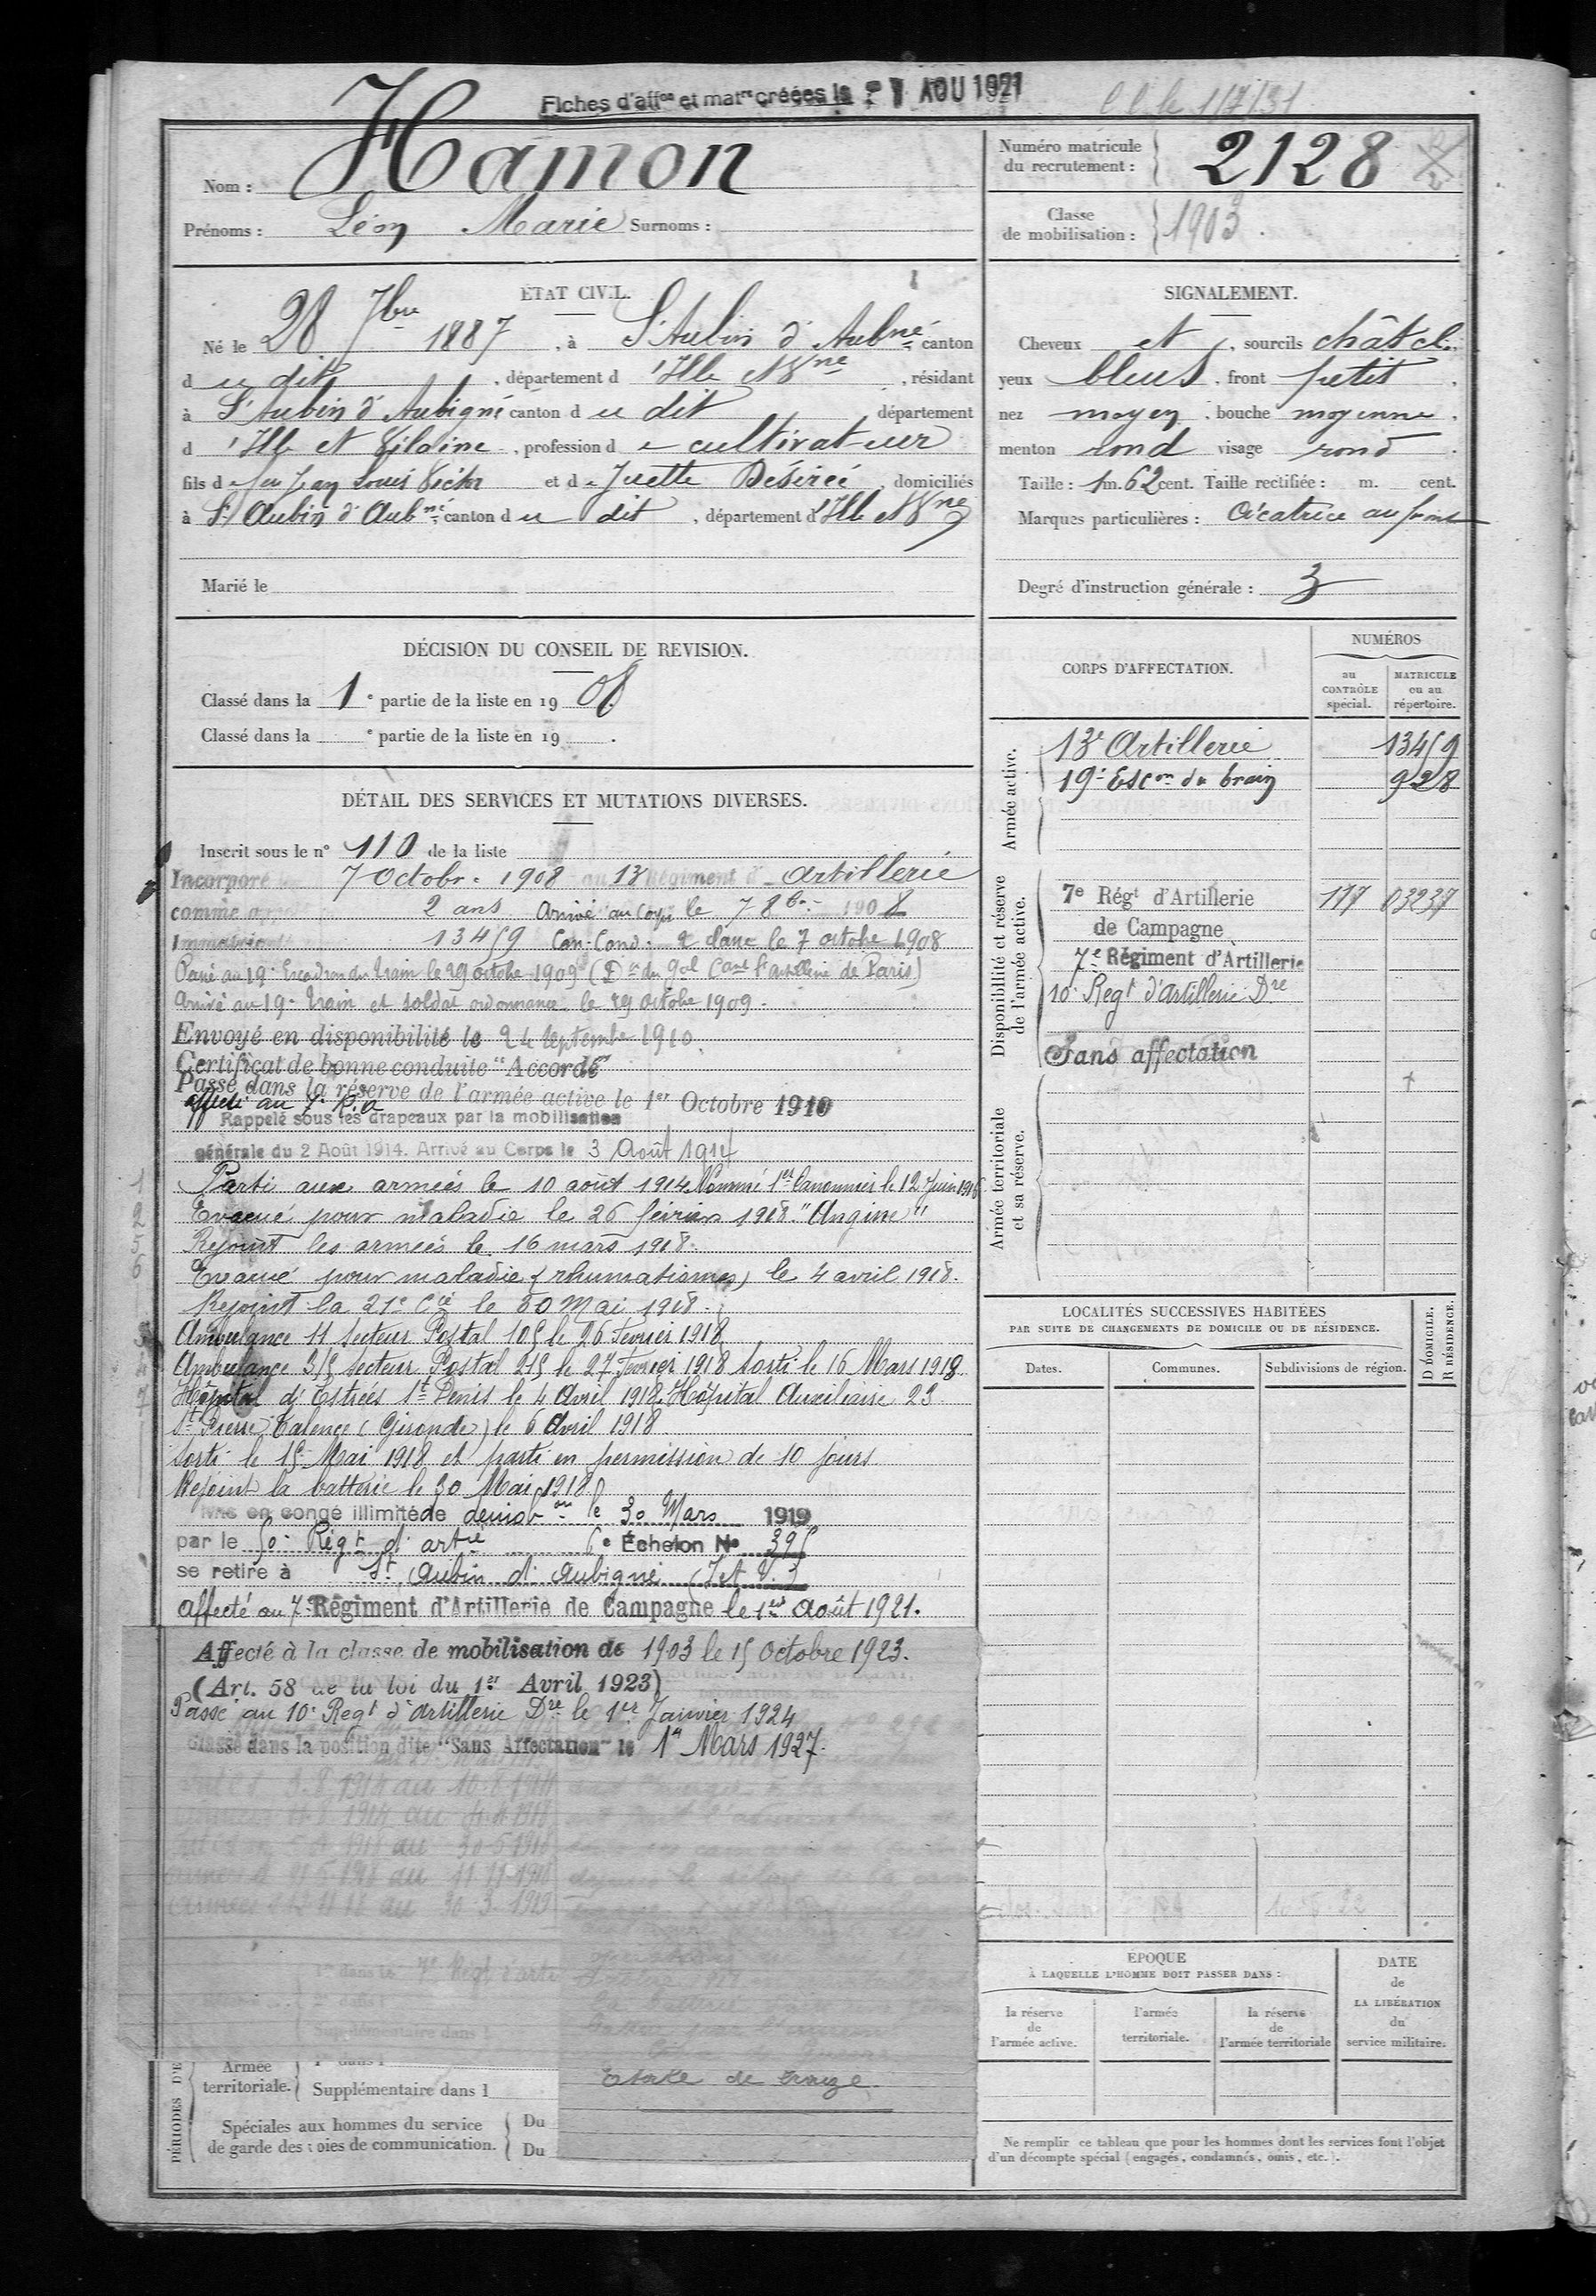 Fiches d'aff^on et mat^re créées le AOU 1921
Nom : Hamon
Prénoms : Léon Marie Surnoms :
Numéro matricule
du recrutement : 2128
Classe
de mobilisation : 1903.
ÉTAT CIVIL.
Né le 28 7bre 1887, à St Aubin d'Aub^né canton
d u dit, département d 'Ille et V^ne, résidant
à St Aubin d'Aubigné canton d u dit département
d 'Ille et Vilaine, profession d e cultivateur
fils d e feu Jean Louis Victor et d e Juette Désirée, domiciliés
à St Aubin d'Aub^né, canton d u dit, département d 'Ille et V^ne
Marié le
SIGNALEMENT.
Cheveux et, sourcils chât cl.
yeux bleus, front petit.
nez moyen, bouche moyenne.
menton rond visage rond.
Taille : 1m. 62 cent. Taille rectifiée : m. cent.
Marques particulières : Cicatrice au front
Degré d'instruction générale : 3
DÉCISION DU CONSEIL DE REVISION.
Classé dans la 1e partie de la liste en 1908.
Classé dans la e partie de la liste en 19 .
CORPS D'AFFECTATION.
NUMÉROS
au
CONTRÔLE
spécial.
MATRICULE
ou au
répertoire.
Armée active.
13e Artillerie 13459
19e Esc^on du train 928
Disponibilité et réserve
de l'armée active.
7e Rég^t d'Artillerie 117 03237
de Campagne
7e Régiment d'Artillerie
10e Reg^t d'Artillerie D^re
Sans affectation
Armée territoriale
et sa réserve.
DÉTAIL DES SERVICES ET MUTATIONS DIVERSES.
Inscrit sous le n° 110 de la liste
Incorporé 7 Octobre 1908 au 13 Régiment d' Artillerie
comme 2 ans Arrivé au Corps le 7 8bre 1908
13459 Can. Cond. 2e classe le 7 octobre 1908
Passé au 19e Escadron du train le 29 octobre 1909
Arrivé au 19e train et soldat ordonnance le 29 octobre 1909.
Envoyé en disponibilité le 24 Septembre 1910.
Certificat de bonne conduite "Accordé"
Passé dans la réserve de l'armée active le 1er Octobre 1910
affecté au 7e R.a
Rappelé sous les drapeaux par la mobilisation
générale du 2 Août 1914. Arrivé au Corps le 3 Août 1914
Parti aux armées le 10 août 1914. Nommé 1er Canonnier le 12 Juin 1916
Evacué pour maladie le 26 février 1918. "Angine"
Rejoint les armées le 16 mars 1918.
Evacué pour maladie (rhumatismes) le 4 avril 1918.
Rejoint la 21e C^ie le 30 Mai 1918.
Ambulance 11 Secteur Postal 105 le 26 Fevrier 1918
Ambulance 3/5 secteur Postal 215 le 27 Fevrier 1918 Sorti le 16 Mars 1918
Hôpital d'Estrées St Denis le 4 Avril 1918, Hôpital Auxiliaire 23
St Pierre Talence (Gironde) le 6 Avril 1918
Sorti le 15 Mai 1918 et parti en permission de 10 jours
Rejoint la batterie le 30 Mai 1918
Mis en congé illimité de démob^on le 30 Mars 1919
par le 50e Rég^t d'art^ie 6e Échelon N° 395
se retire à St Aubin d'Aubigné (I et V.)
Affecté au 7e Régiment d'Artillerie de Campagne le 1er Août 1921.
Affecté à la classe de mobilisation de 1903 le 15 Octobre 1923.
(Art. 58 de la loi du 1er Avril 1923)
Passé au 10e Reg^t d'Artillerie D^re le 1er Janvier 1924
Classé dans la position dite "Sans Affectation" le 1er Mars 1927.
LOCALITÉS SUCCESSIVES HABITÉES
PAR SUITE DE CHANGEMENTS DE DOMICILE OU DE RÉSIDENCE.
Dates. Communes. Subdivisions de région. D DOMICILE. R RÉSIDENCE.
ÉPOQUE
À LAQUELLE L'HOMME DOIT PASSER DANS :
la réserve
de
l'armée active.
l'armée
territoriale.
la réserve
de
l'armée territoriale
DATE
de
LA LIBÉRATION
du
service militaire.
Ne remplir ce tableau que pour les hommes dont les services font l'objet
d'un décompte spécial (engagés, condamnés, omis, etc.).
PÉRIODES D'E
Armée
territoriale.
Supplémentaire dans l
Spéciales aux hommes du service
de garde des voies de communication.
Du
Du